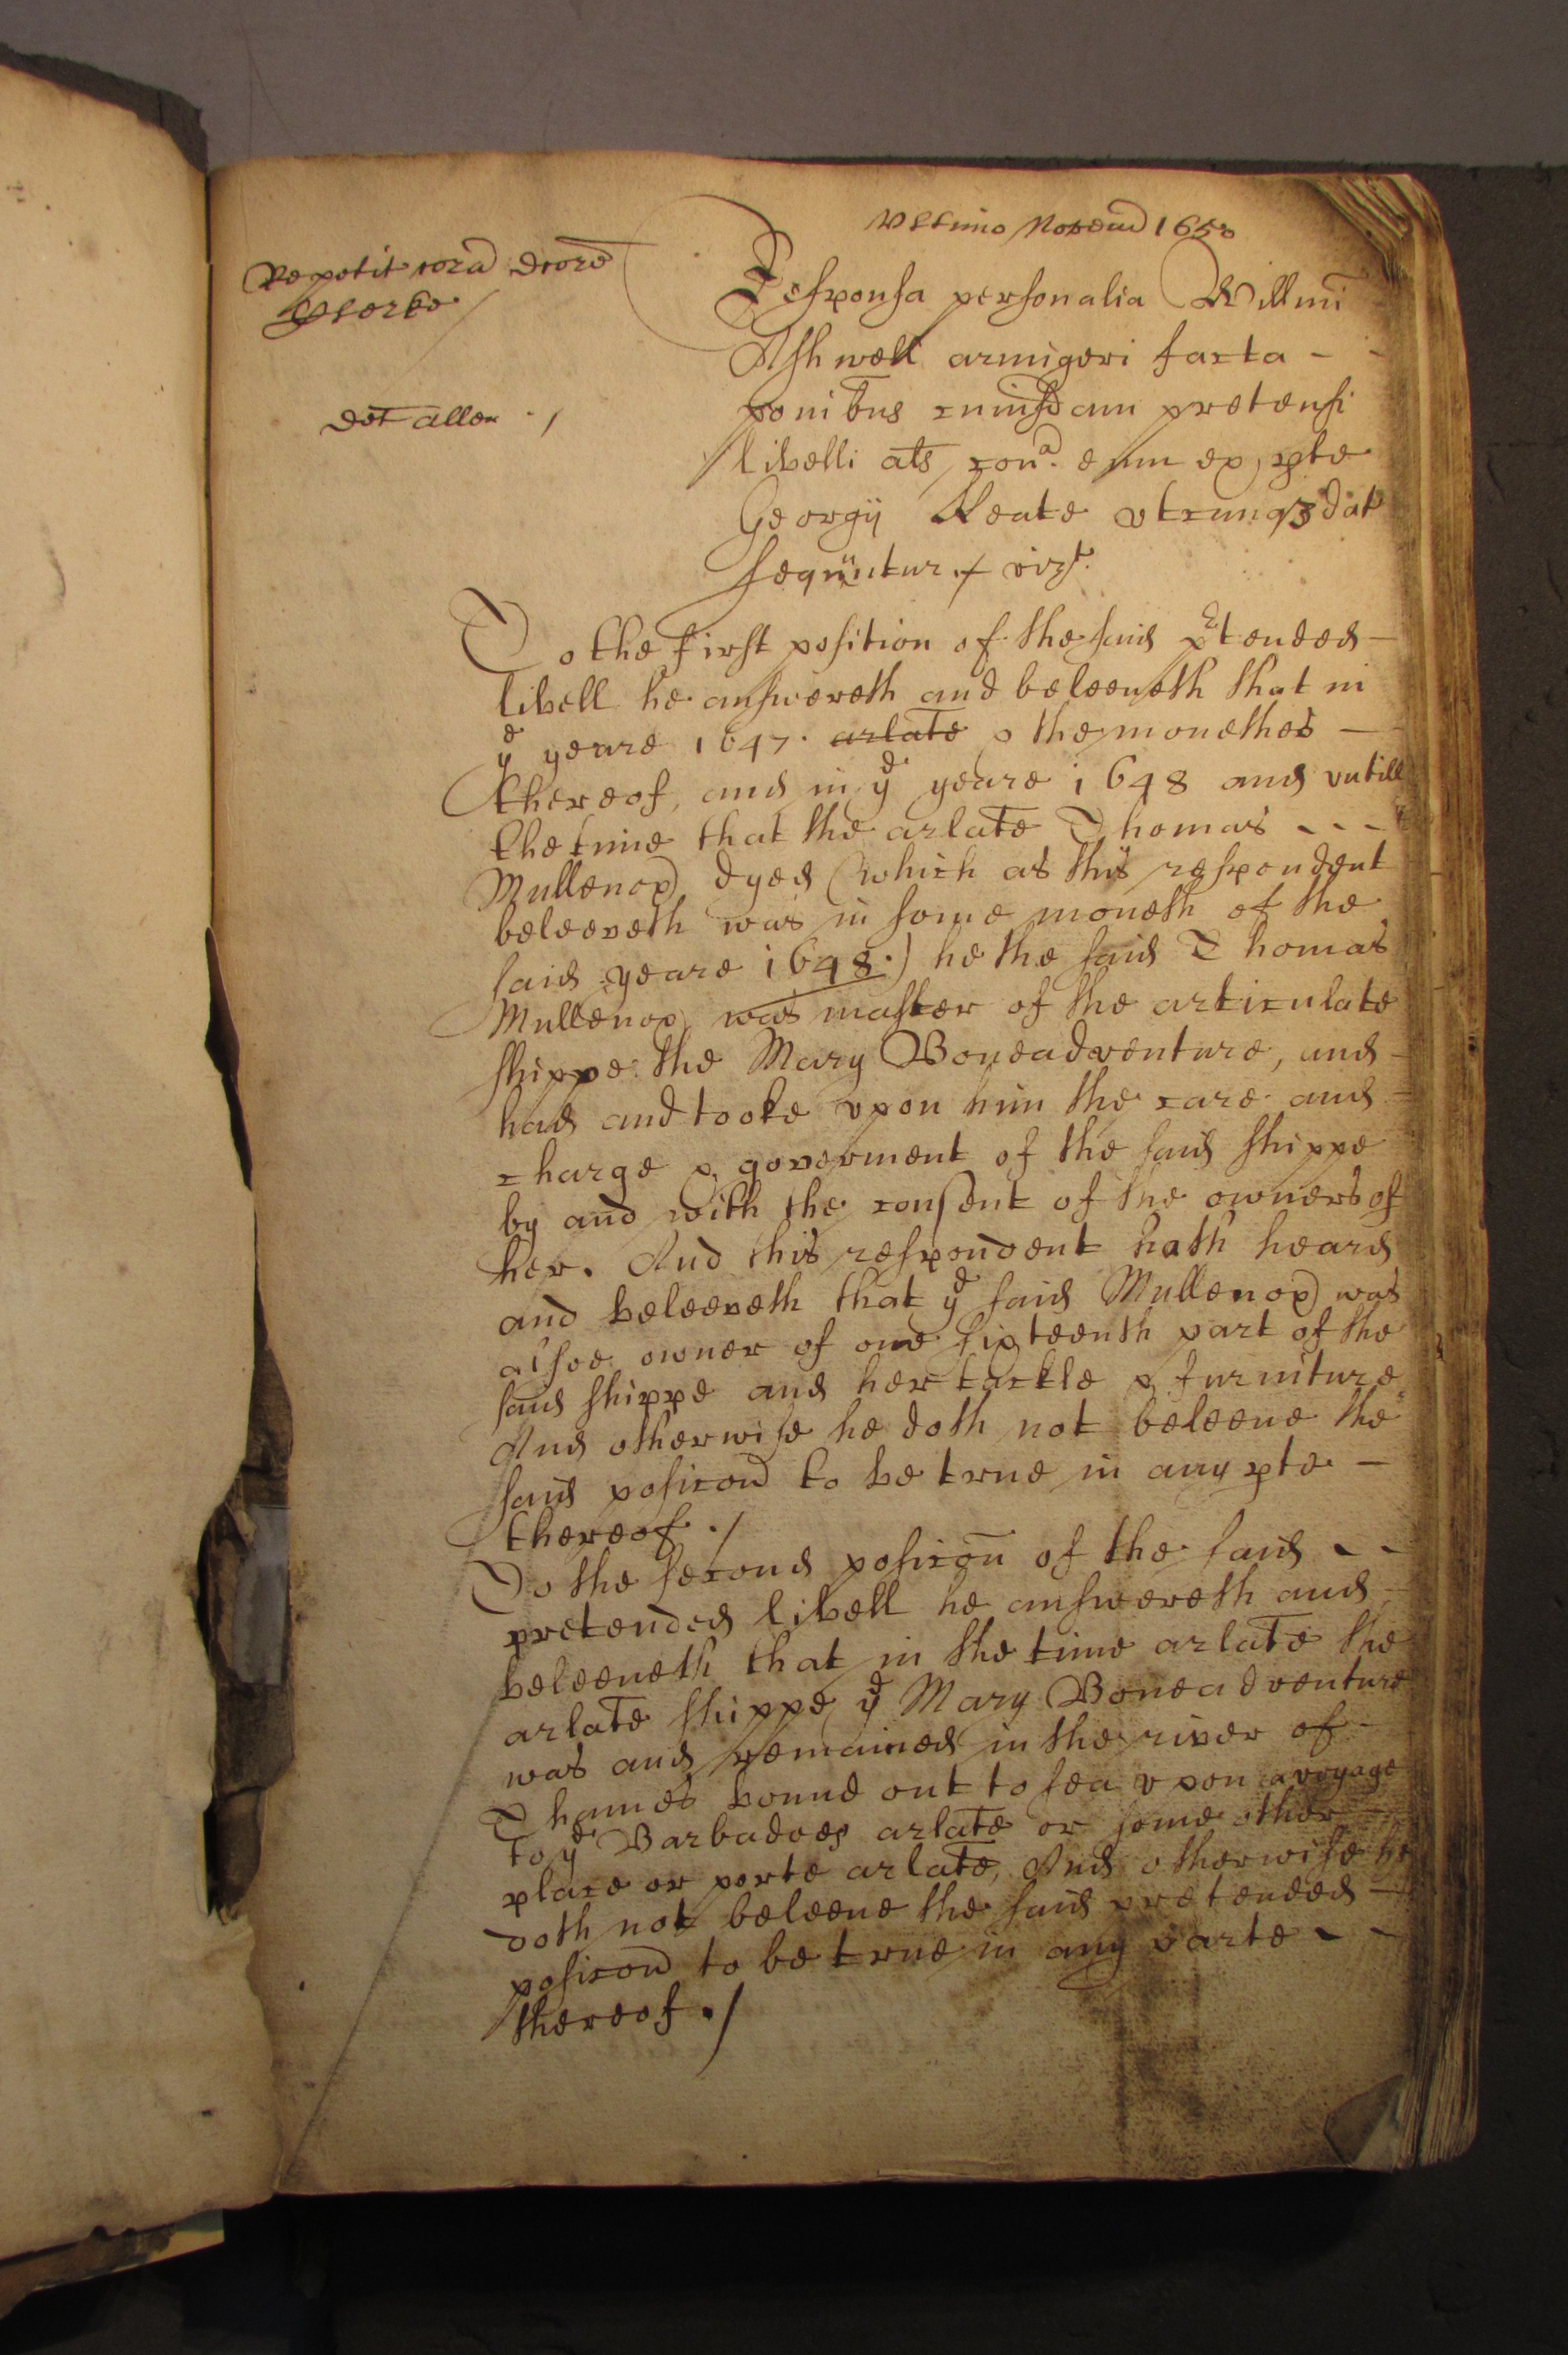 Vltimo Novem 1650
Repetit cora doore
Clerke
det Allen ./
Responsa personalia Willmi
Ashwell armigeri facta - -
ponibus cuiusdam pretensi
libelli als con^a. eum ex pte
Georgij Keate vtcunq3 dat
sequuntur / vizt.
To the first position of the said p^rtended -
libell he answereth and beleeueth that in
y^e yeare 1647. arlate & the monethes -
thereof, and in y^e yeare 1648 and vntill
the time that the arlate Thomas - - -
Mullenox dyed (which as this respondent
beleeveth was in some moneth of the
said yeare 1648.) he the said Thomas
Mullenox was master of the articulate
shippe the Mary Boneadventure, and -
had and tooke vpon him the care and -
charge & goverment of the said shippe
by and with the consent of the owners of
her. And this respondent hath heard
and beleeveth that y^e said Mullenox was
alsoe owner of one sixteenth part of the
said shippe and her tackle & furniture
And otherwise he doth not beleeue the
said posicon to be true in any pte -
thereof ./
To the second posicon of the said - -
pretended libell he answereth and
beleeueth that in the time arlate the
arlate shippe y^e Mary Boneadventure
was and remained in the river of -
Thames bound out to sea vpon a voyage
to y^e Barbadoes arlate or some other -
place or porte arlate, And otherwise he
doth not beleeue the said pretended -
posicon to be true in any parte - -
thereof ./